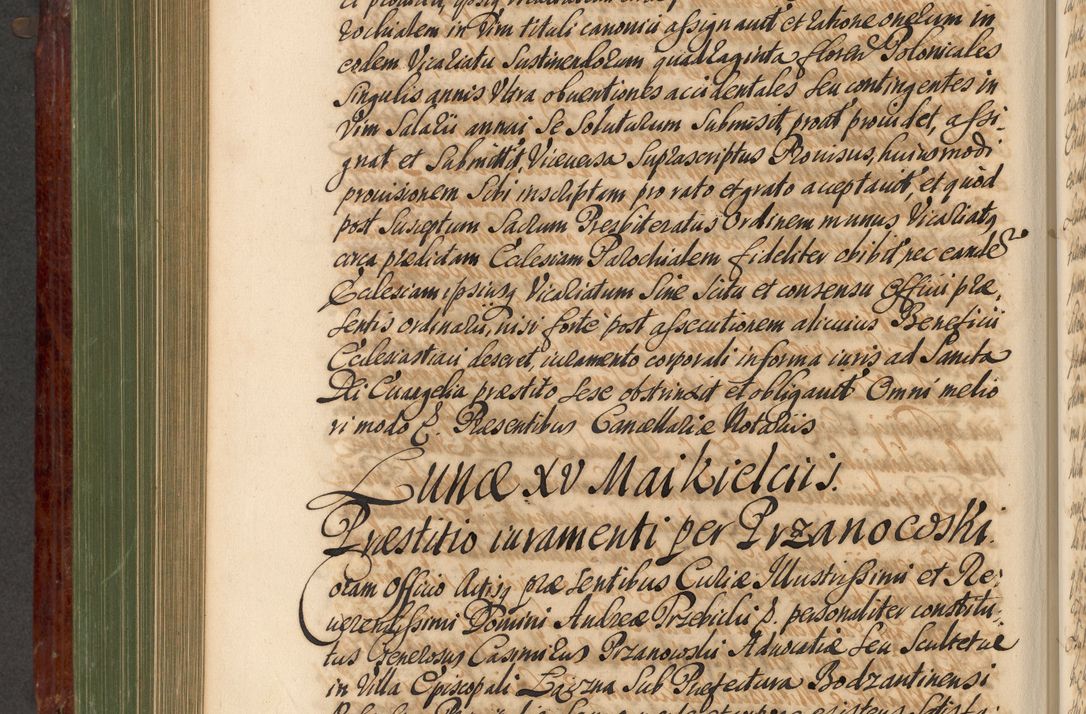 rochialem in Vim tituli canonici assignauit et ratione onerum in
eodem Vicariatu Sustinendorum quadraginta floren Polonicales
Singulis annis Vltra obuentiones accidentales seu contingentes in
Vim Salarii annui se Soluturum Submisit, prout prouidet, assi-
gnat et Submittit, Viceuersa Suprascriptus Prouisus, huiusmodi
prouisionem Sibi inscriptam pro rato et grato acceptauit, et quod
post Susceptum Sacrum Presbiteratus Ordinem munus Vicariatus
circa praedictam Ecclesiam Parochialem fideliter obibit nec eande
Ecclesiam ipsiusq Vicariatum Sine Scitu et consensu Officii prae,
sentis ordinarii, nisi forte post assecutionem alicuius Beneficii
Ecclesiastici deseret, iuramento corporali in forma iuris ad Sancta
Dei Euangelia praestito sese obstrinxit et obligauit Omni melio
ri modo &. Praesentibus Cancellariae Notariis
Lunae XV Maii Kielciis.
Praestitio iuramenti per Przanowski.
Coram Officio Actisq praesentibus Curiae Illustrissimi et Re-
uerendissimi Domini Andreae Trzebicki &. personaliter constitu-
tus Generosus Casimirus Przanowski Aduocatiae seu Scultetiae
in Villa Episcopali Łazzna Sub Praefectura Bodzantinensi